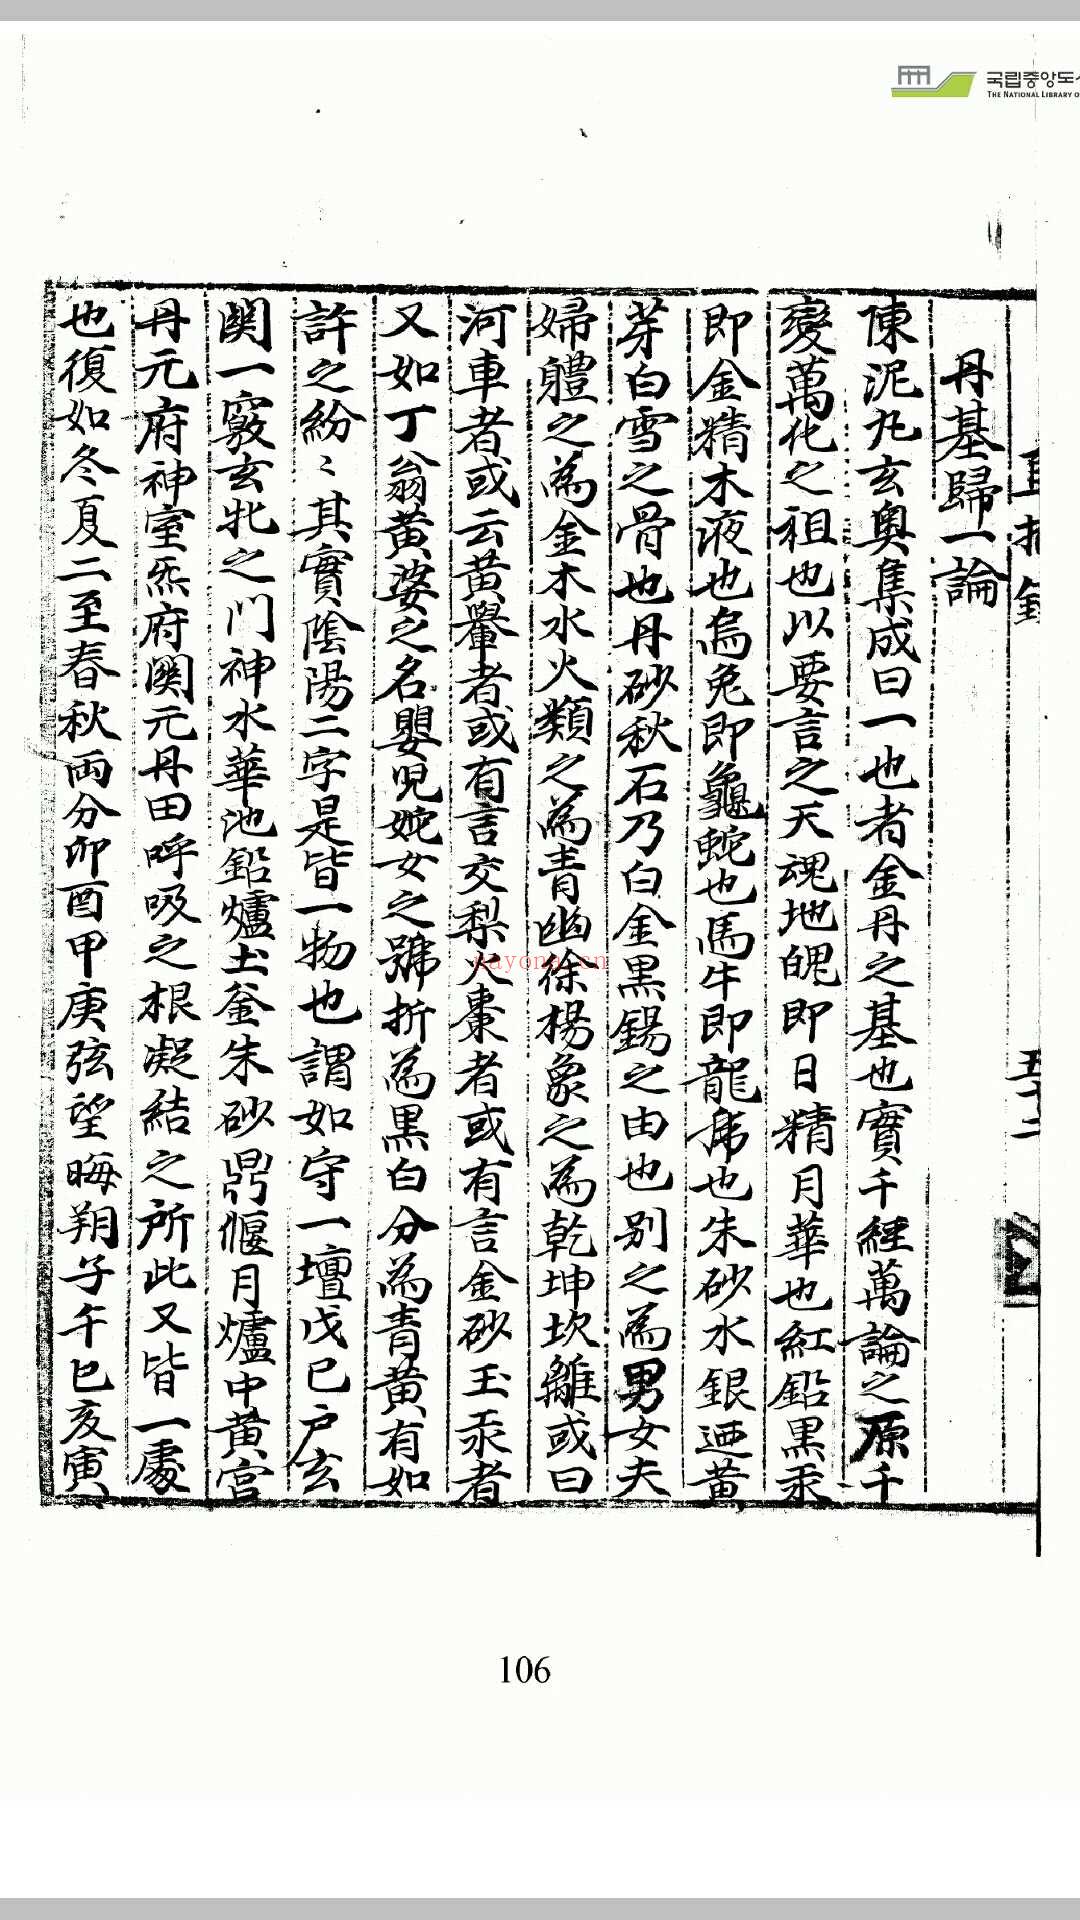 국립중앙도
THE NATIONAL LIBRARY O
五十二
丹基歸一論
陳泥丸玄奧集成曰一也者金丹之基也實千經萬論之原千
變萬化之祖也以要言之天魂地魄即日精月華也紅鉛黑汞
即金精木液也烏兔即龜蛇也馬牛即龍虎也朱砂水銀迺黃
芽白雪之骨也丹砂秋石乃白金黑錫之由也別之為男女夫
婦體之為金木水火類之為青幽徐楊象之為乾坤坎離或曰
河車者或云黃轝者或有言交梨火棗者或有言金砂玉汞者
又如丁翁黃婆之名嬰児姹女之號折為黒白分為青黃有如
許之紛〻其實陰陽二字是皆一物也謂如守一壇戊巳户玄
関一竅玄牝之门神水華池鉛爐土釜朱砂鼎偃月爐中黃宮
丹元府神室炁府関元丹田呼吸之根凝結之所此又皆一處
也復如冬夏二至春秋兩分卯酉甲庚弦望晦朔子午巳亥寅
nayona.cn
106